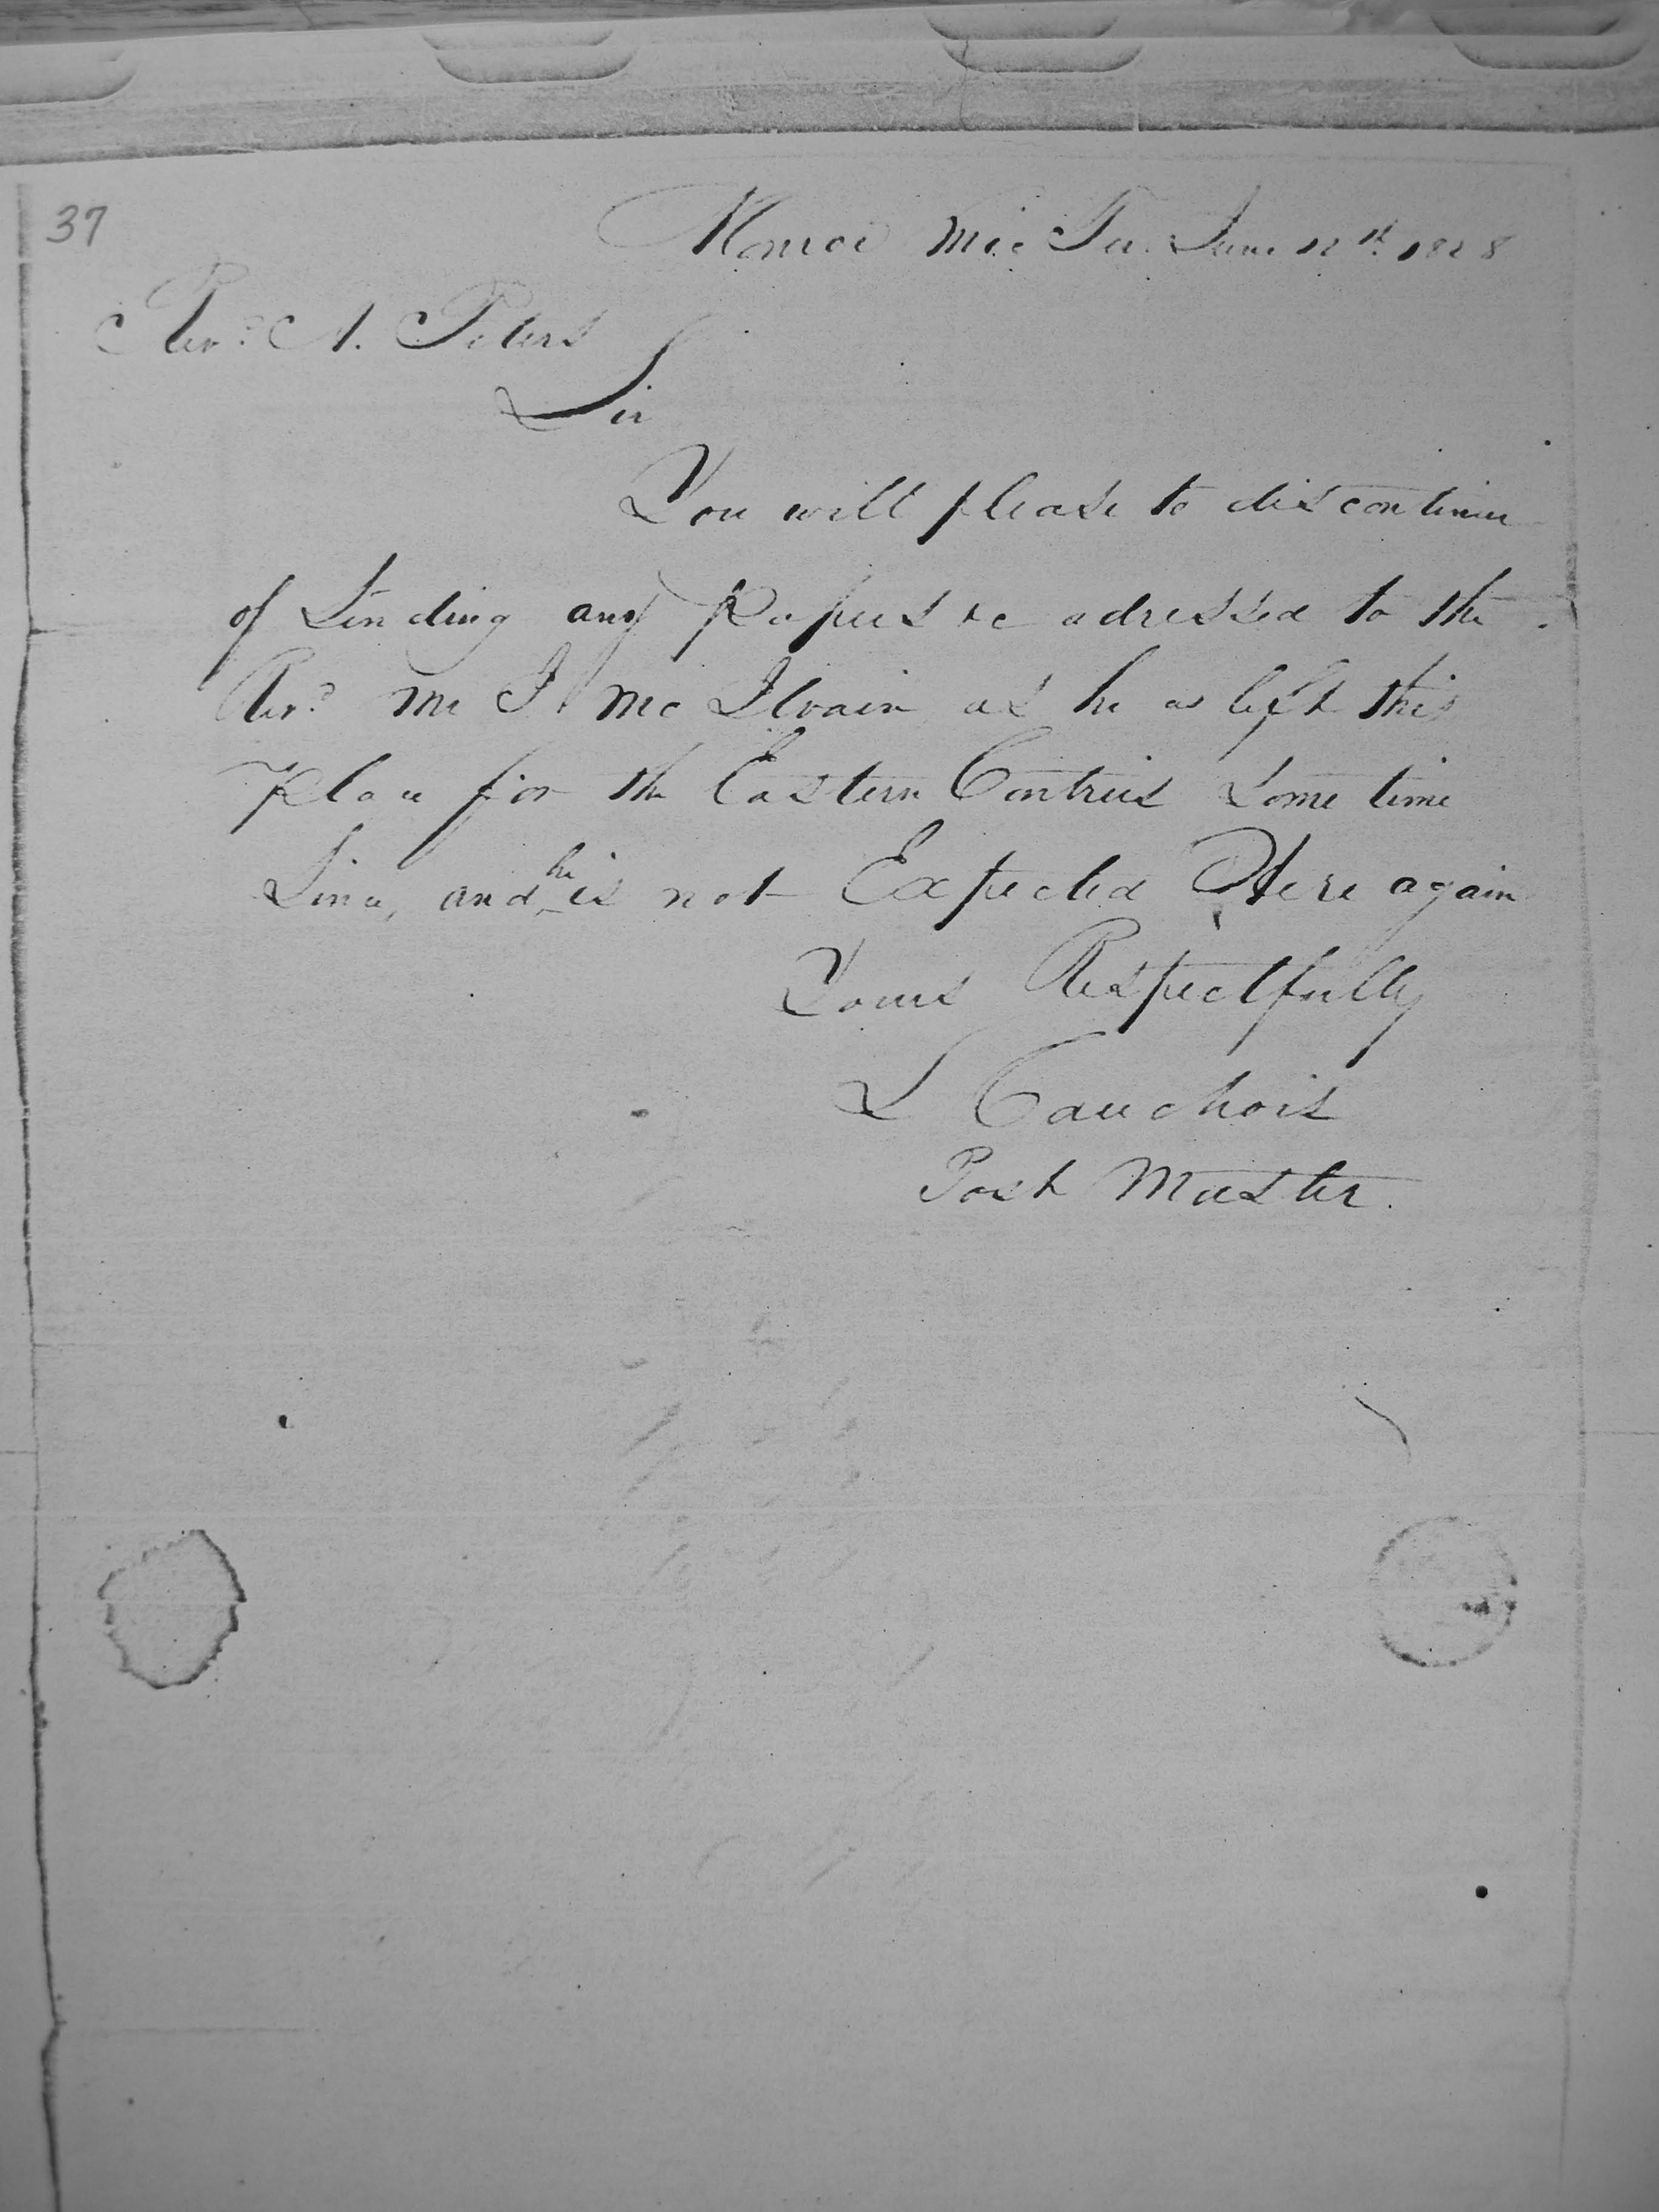 37
Monroe Mic Ter. June 12th 1828
Revd. A. Peters
Sir
You will please to discontinue
of Sending any Papers &c adressed to the
Revd. Mr J Mc Ilvain as he as left this
Place for the Eastern Contries Some time
Since, and he is not Expected Here again
Yours Respectfully
L Cauchois
Post Master.